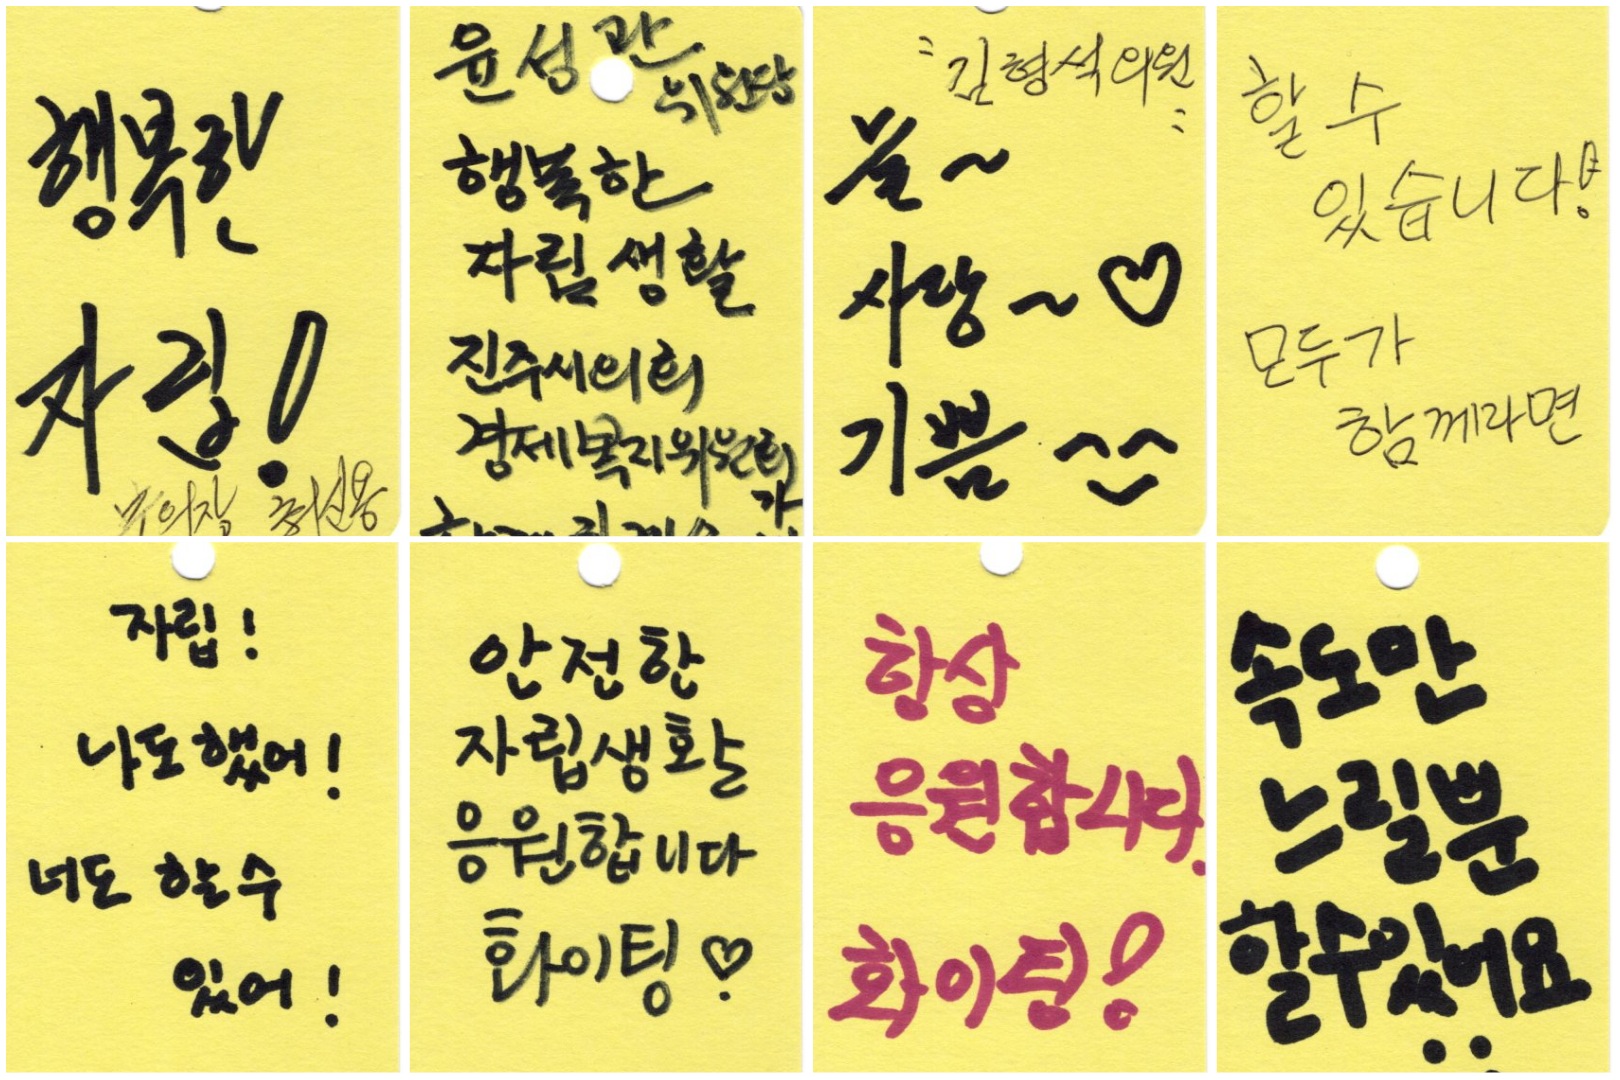 행복한
자립!
부의장 최신용
윤성관
위원장
행복한
자립생활
진주시의회
경제복지위원회
가
"김형석의원"
사랑~♡
기쁨 ^^
할 수
있습니다!
모두가
함께라면
자립!
나도 했어!
너도 할 수
있어!
안전한
자립생활
응원합니다
화이팅♡
항상
응원합니다.
화이팅!
속도만
느릴뿐
할수있어요